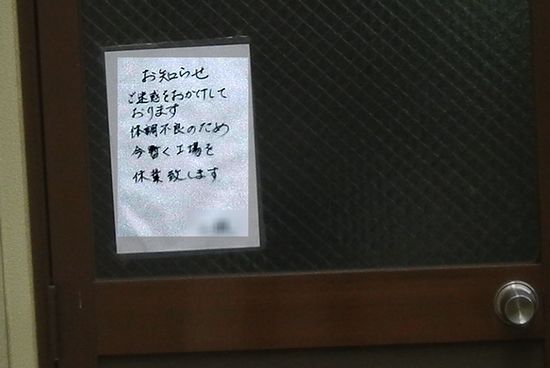 お知らせ
ご迷惑をおかけして
おります
体調不良のため
今暫く工場を
休業致します